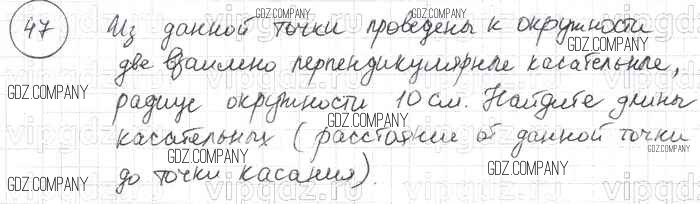 47 Из данной точки проведены к окружности
две взаимно перпендикулярные касательные,
радиус окружности 10 см. Найдите длины
касательных (расстояние от данной точки
до точки касания).
GDZ.COMPANY
GDZ.COMPANY
GDZ.COMPANY
GDZ.COMPANY
GDZ.COMPANY
GDZ.COMPANY
GDZ.COMPANY
GDZ.COMPANY
GDZ.COMPANY
GDZ.COMPANY
GDZ.COMPANY
vipgdz.ru